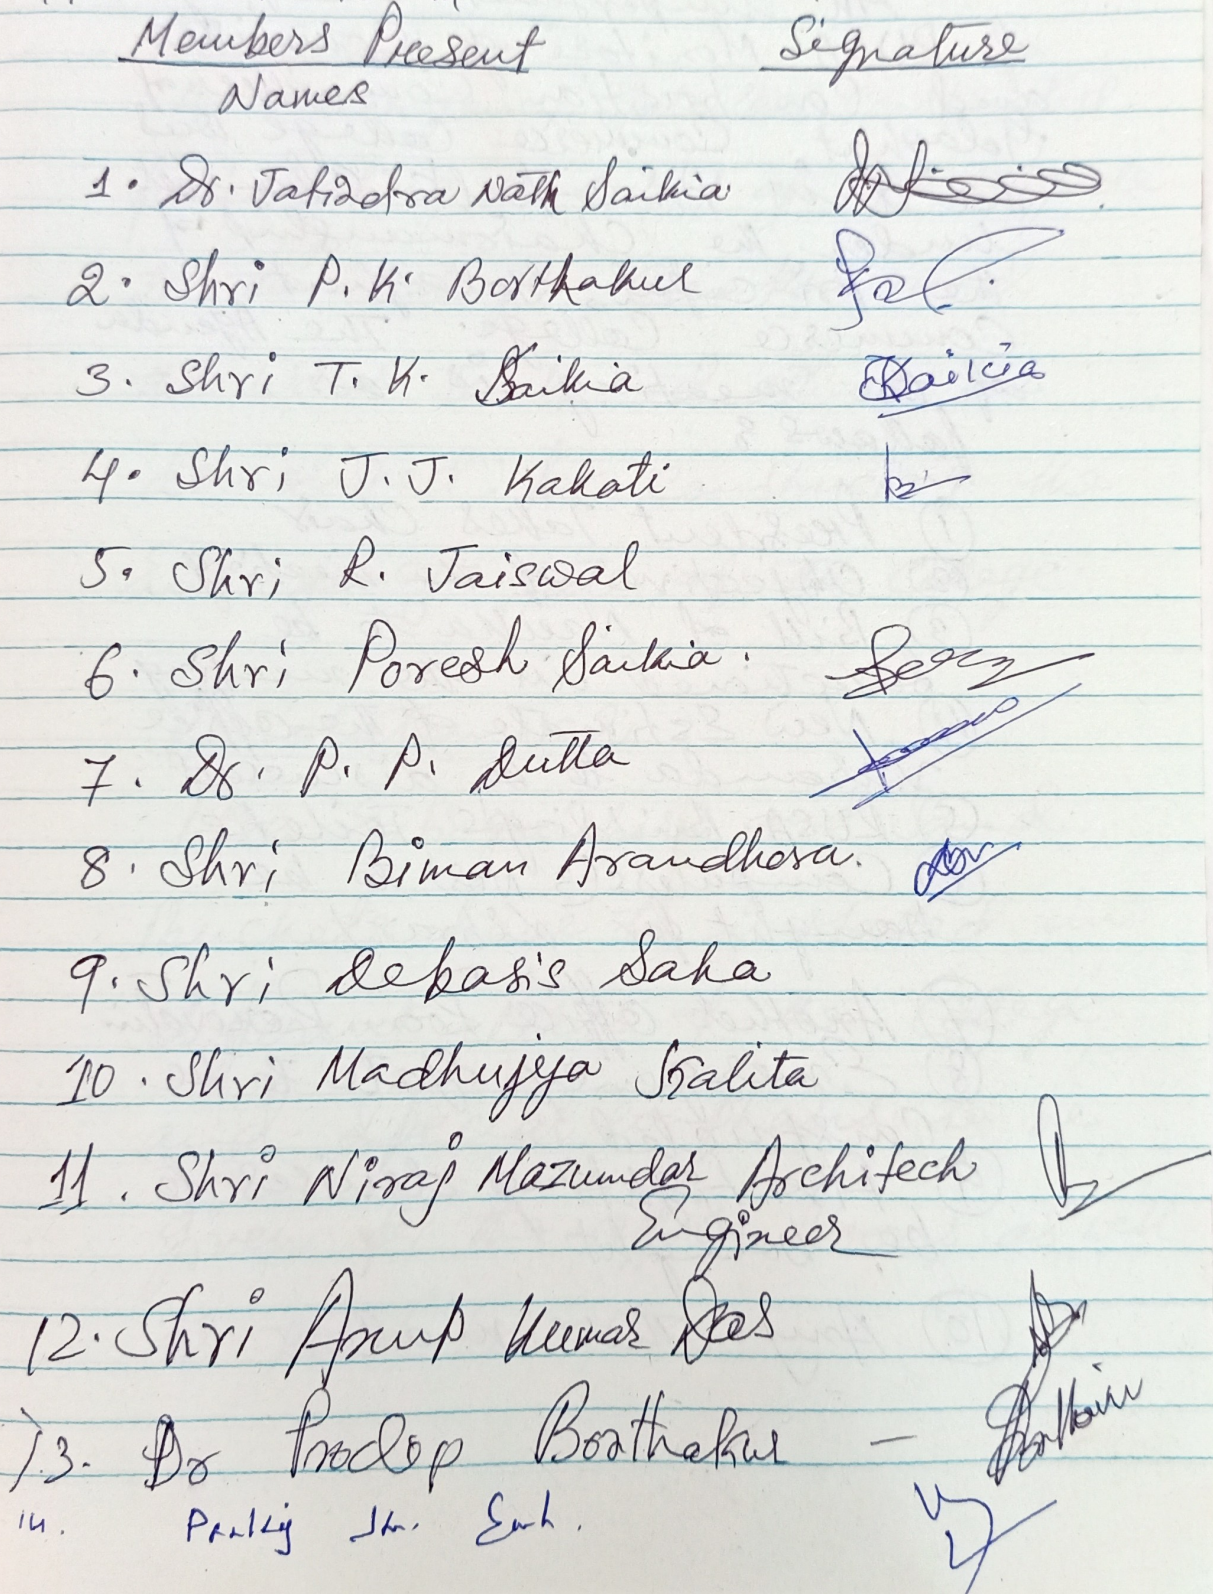 Members Present Signature
Names
1. Dr. Jatindra Nath Saikia
2. Shri P. K. Borthakur
3. Shri T. K. Saikia Saikia
4. Shri J. J. Kakati
5. Shri R. Jaiswal
6. Shri Poresh Saikia.
7. Dr. P. P. Dutta
8. Shri Biman Arandhara.
9. Shri Debasis Saha
10. Shri Madhujya Kalita
11. Shri Niraj Mazumdar Architech
Engineer
12. Shri Anup Kumar Das
13. Dr Pradop Borthakur -
14.